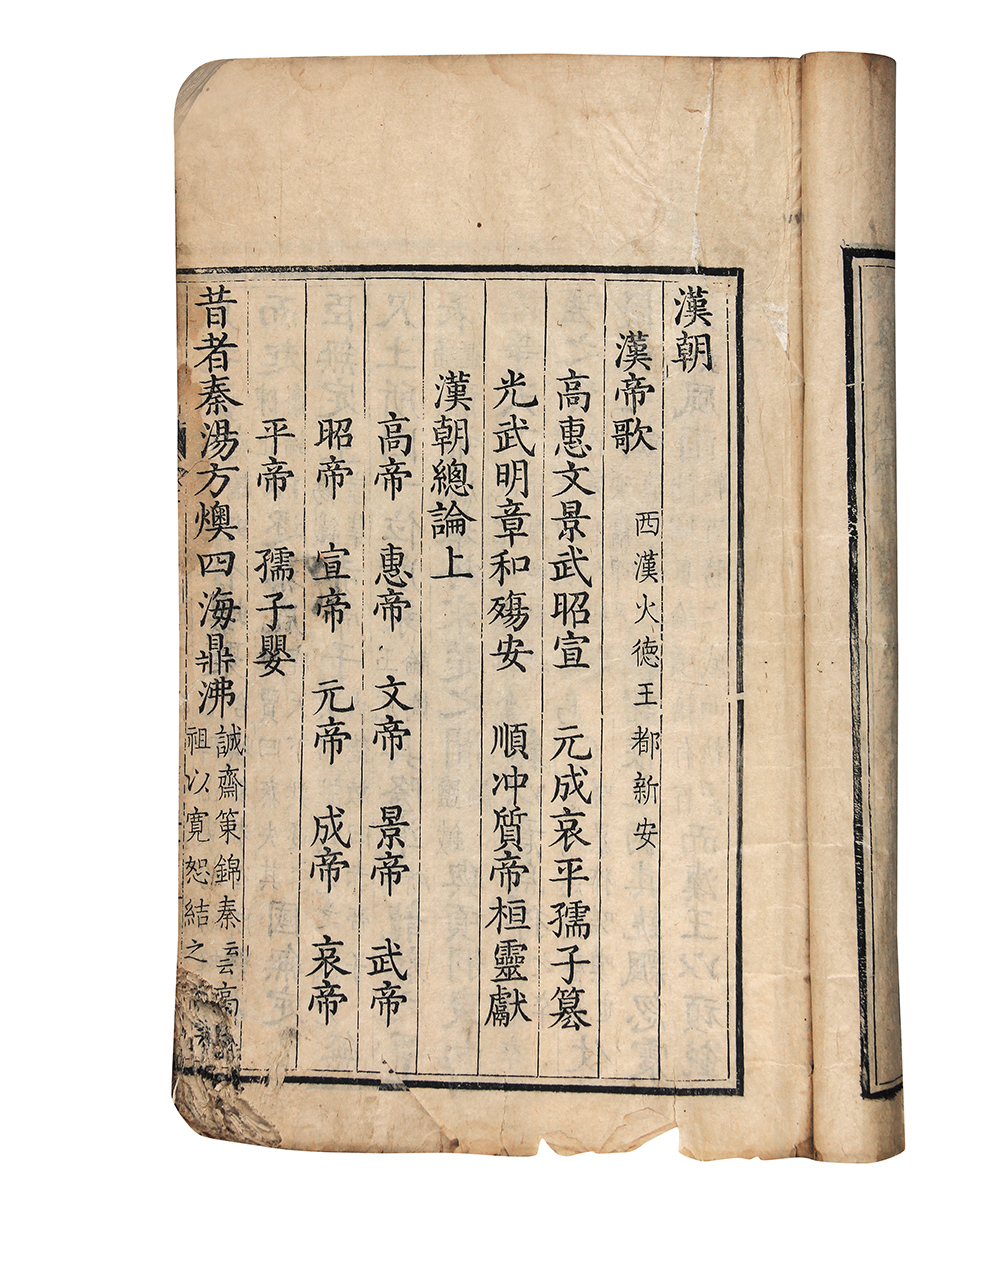 漢朝
漢帝歌 西漢火德王都新安
高惠文景武昭宣 元成哀平孺子簒
光武明章和殤安 順沖質帝桓靈獻
漢朝總論上
高帝 惠帝 文帝 景帝 武帝
昭帝 宣帝 元帝 成帝 哀帝
平帝 孺子嬰
昔者秦湯方燠四海鼎沸
誠齋策錦秦云云高
祖以寛恕結之